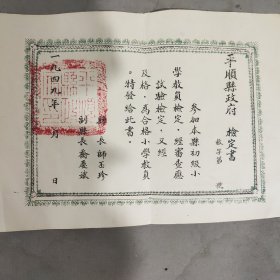 平順縣政府 檢定書
教字第 號
參加本縣初級小
學教員檢定，經審查應
試驗檢定，又經
及格，為合格小學教員
。特發給此書。
縣長師玉珍
副縣長喬慶斌
一九四九年 月 日